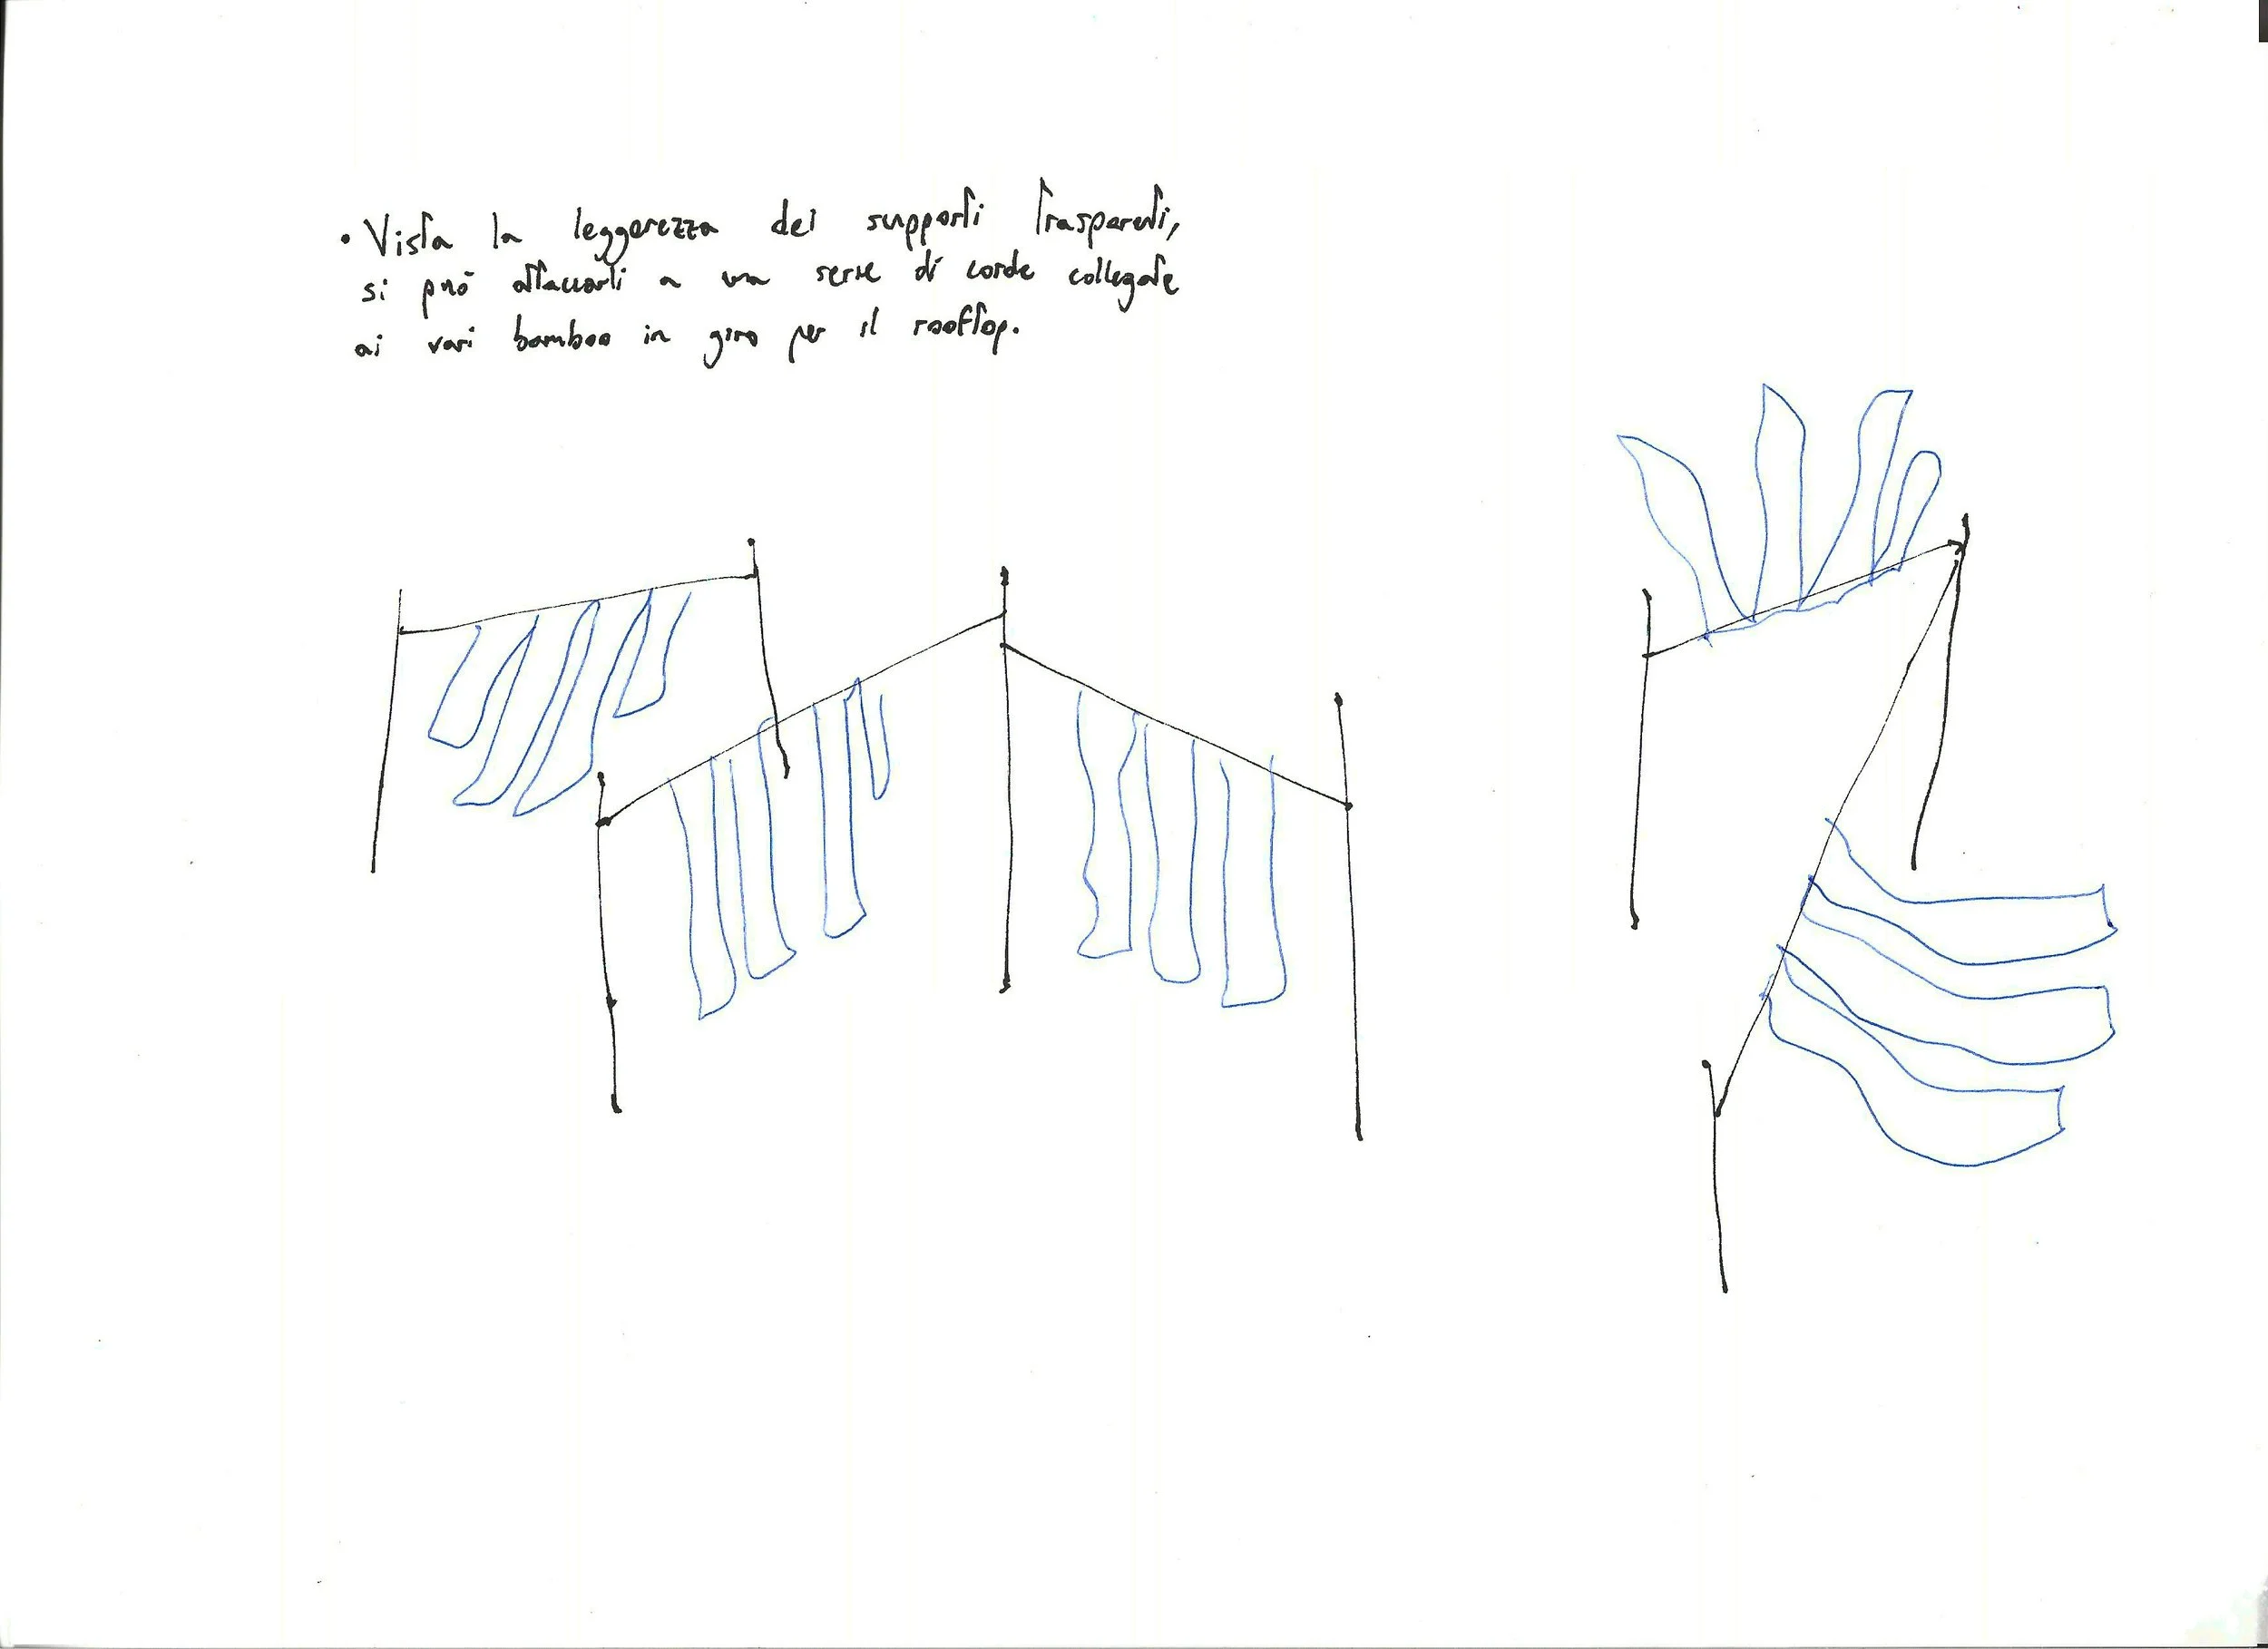 • Vista la leggerezza dei supporti trasparenti,
si può attaccarli a una serie di corde collegate
ai vari bamboo in giro per il rooftop.